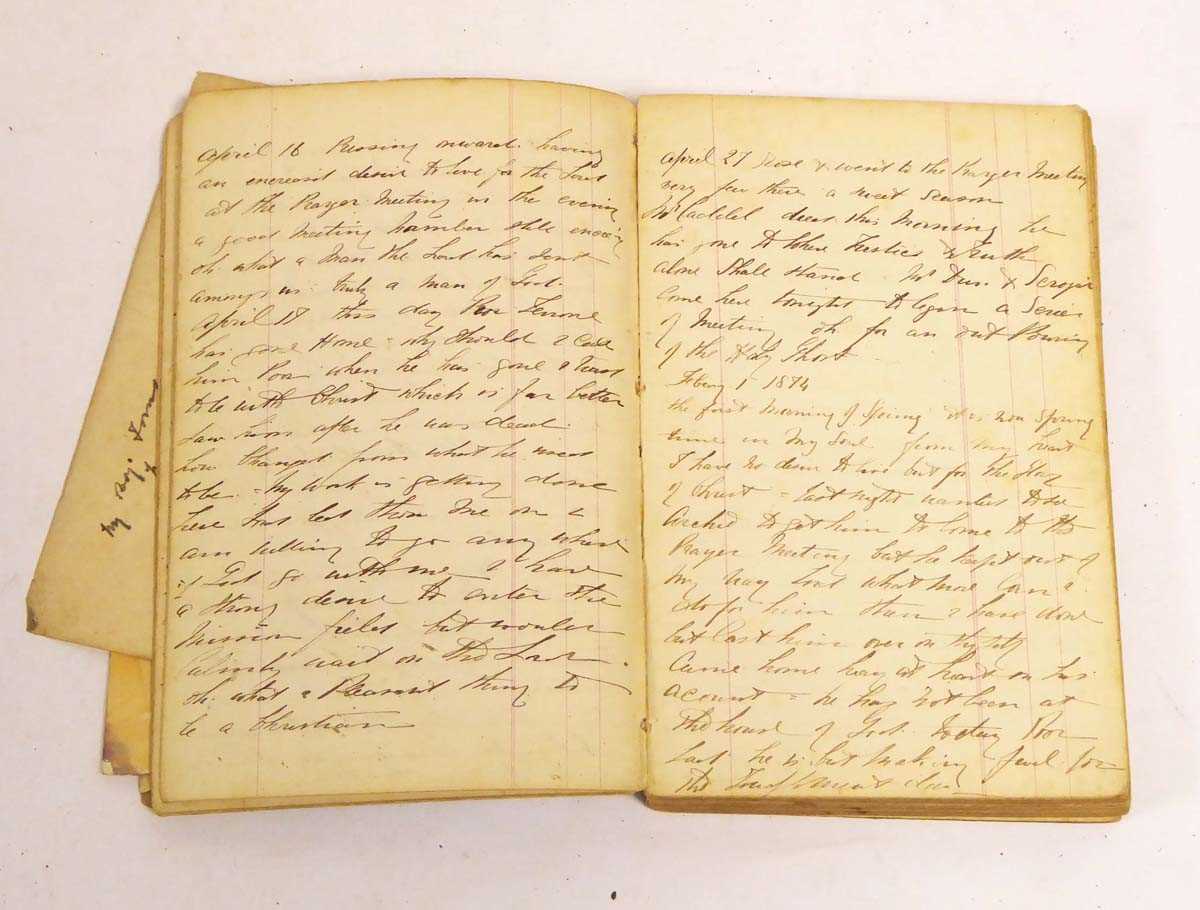 April 16 Pressing onward having
an encreast desire to live for the Lord
at the Prayer Meeting in the evening
a good Meeting number still
oh what a Man the Lord has sent
amongs us truly a man of God.
April 18 this day Poor
has gone Home = why should I Call
him Poor when he has gone I trust
to be with Christ which is far better
Saw him after he was dead.
how Changed from what he used
to be = My work is getting done
here has but them me on I
am willing to go any where
if God go with me I have
a strong desire to enter the
Mission field but would
Calmly wait on the Lord.
oh what a Pleasant thing to
be a Christian
April 27 Rose & went to the Prayer Meeting
very few there a sweet Season
Mr died this Morning he
has gone to where Justice & Truth
alone Shall Stand Mr &
Come here tonight to begin a Series
of Meeting oh for an out Pouring
of the Holy Ghost
1 1874
the first Morning of Spring it is now Spring
time in My Soul from my heart
I have no desire to live but for the Glory
of Christ = last night wanted to see
Archie to get him to Come to the
Prayer Meeting but he kept out of
My way Lord what more Can I
do for him than I have done
but Cast him over on
Came home heavy at heart on his
account = he has not been at
the house of God to day Poor
lad he is but making fuel for
the day
My